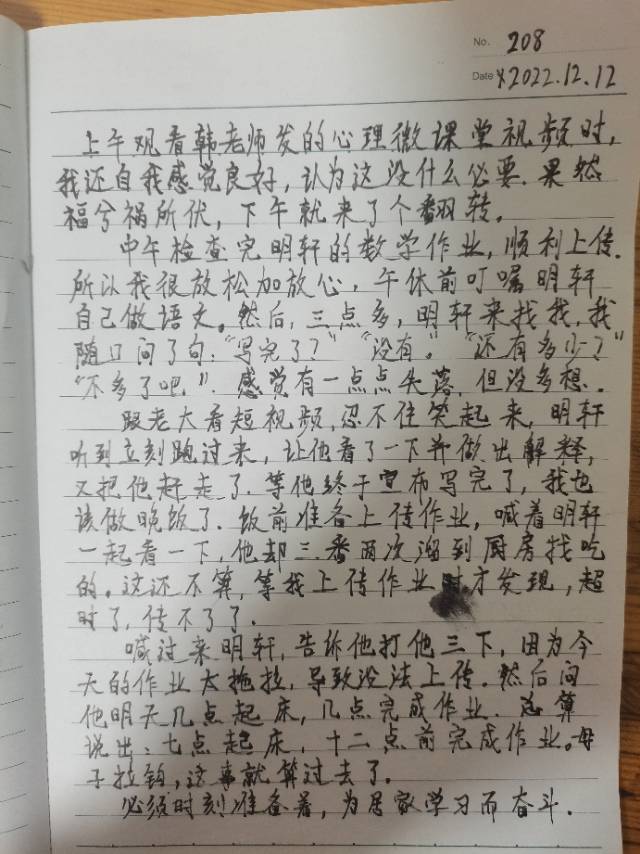 No. 208
Date 2022.12.12
上午观看韩老师发的心理微课堂视频时,
我还自我感觉良好,认为这没什么必要.果然
福兮祸所伏,下午就来了个翻转。
中午检查完明轩的数学作业,顺利上传.
所以我很放松加放心,午休前叮嘱明轩
自己做语文。然后,三点多,明轩来找我,我
随口问了句:“写完了?”“没有。”“还有多少?”
“不多了吧.”感觉有一点点失落,但没多想.
跟老大看短视频,忍不住笑起来,明轩
听到立刻跑过来,让他看了一下并做出解释,
又把他赶走了.等他终于宣布写完了,我也
该做晚饭了.饭前准备上传作业,喊着明轩
一起看一下,他却三番两次溜到厨房找吃
的。这还不算,等我上传作业时才发现,超
时了,传不了了.
喊过来明轩,告诉他打他三下,因为今
天的作业太拖拉,导致没法上传.然后问
他明天几点起床,几点完成作业.总算
说出:七点起床,十二点前完成作业。母
子拉钩,这事就算过去了.
必须时刻准备着,为居家学习而奋斗.